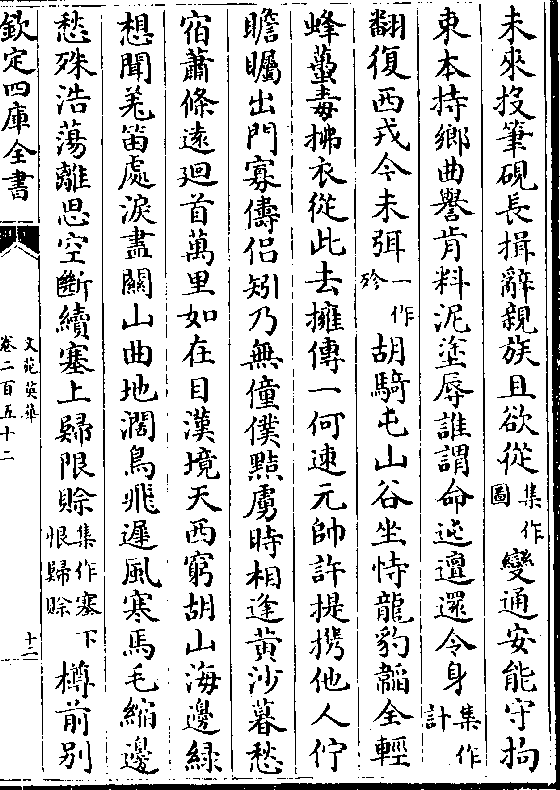 未來投筆硯長揖辭親族且欲從集作圖變通安能守拘
束本持鄉曲譽肯料泥塗辱誰謂命迍邅還令身集作計
翻復西戎今未弭一作殄胡騎屯山谷坐恃龍豹韜全輕
蜂蠆毒拂衣從此去擁傳一何速元帥許提攜他人佇
瞻矚出門寡儔侣矧乃無僮僕黠虜時相逢黄沙暮愁
宿蕭條逺廻首萬里如在目漢境天西窮胡山海邊緑
想聞羌笛處淚盡關山曲地濶鳥飛遲風寒馬毛縮邊
愁殊浩蕩離思空斷續塞上歸限賖集作塞下恨歸賖樽前别
欽定四庫全書
文苑英華
卷二百五十二
十二